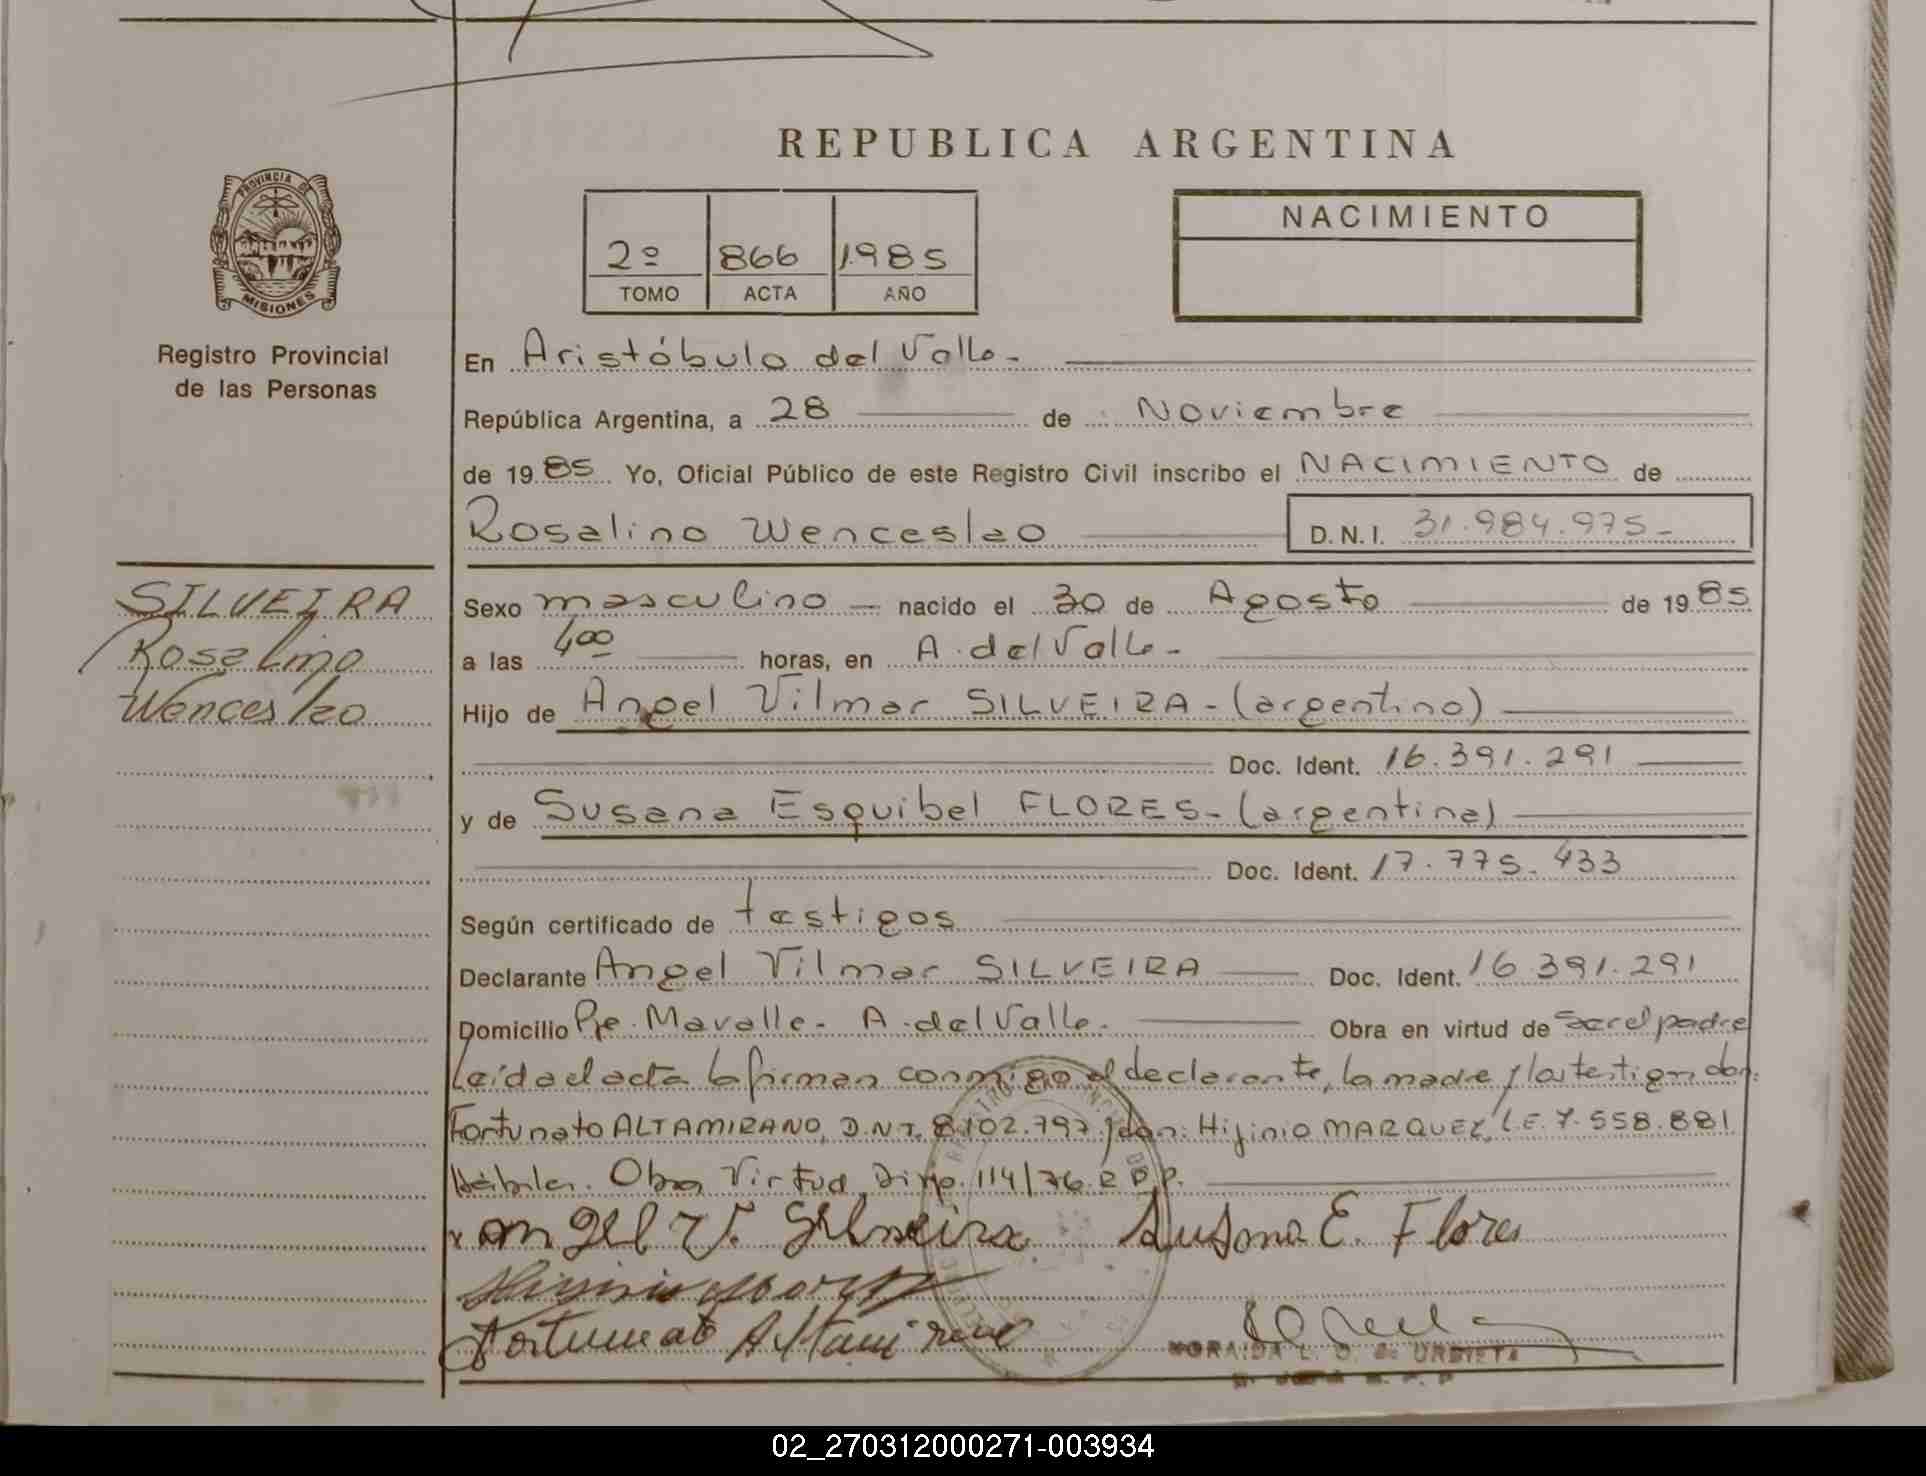 REPUBLICA ARGENTINA
PROVINCIA DE
MISIONES
Registro Provincial
de las Personas
2º 866 1985
TOMO ACTA AÑO
NACIMIENTO
En Aristóbulo del Valle.-
República Argentina, a 28 de Noviembre
de 1985 Yo, Oficial Público de este Registro Civil inscribo el NACIMIENTO de
Rosalino Wenceslao D.N.I. 31.984.975-
SILVEIRA
Rosalino
Wenceslao
Sexo masculino — nacido el 30 de Agosto de 1985
a las 4⁰⁰ horas, en A. del Valle-
Hijo de Angel Vilmar SILVEIRA-(argentino)
Doc. Ident. 16.391.291
y de Susana Esquibel FLORES-(argentina)
Doc. Ident. 17.775.433
Según certificado de testigos
Declarante Angel Vilmar SILVEIRA Doc. Ident. 16.391.291
Domicilio Pje. Mavalle- A. del Valle. Obra en virtud de ser el padre
Leída el acta la firman conmigo el declarante, la madre y los testigos don:
Fortunato ALTAMIRANO, D.N.I. 8.102.797 y don: Hijinio MARQUEZ, L.E. 7.558.881
Hábiles. Obra Virtud Disp. 114/76.R.P.P.
Angel V. Silveira Susana E. Flores
Fortunato Altamirano
HORAIDA L. O. de URBIETA
02_270312000271-003934